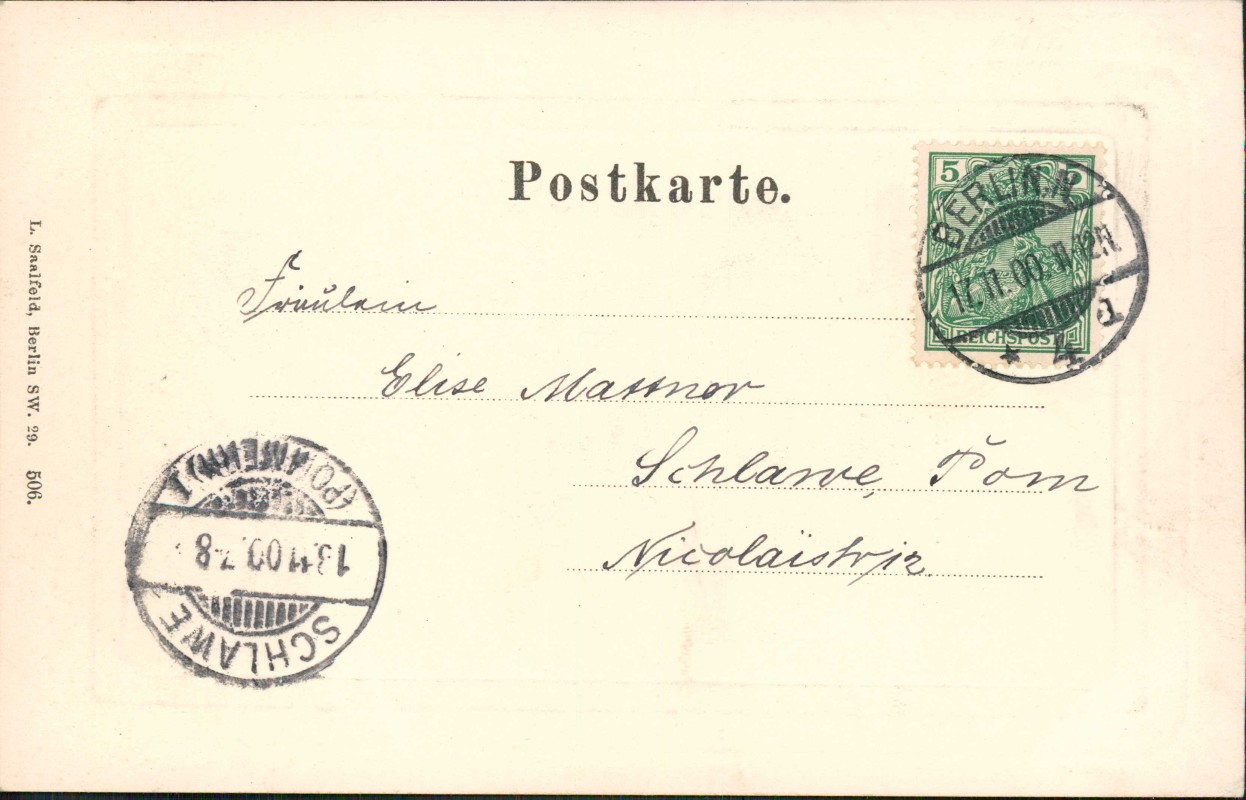 Postkarte.
5 5
REICHSPOST
BERLIN. N.
11-12N
* 4 d
Fräulein
Elise
Schlawe, Pom
Nicolaistr 12.
SCHLAWE
(POMMERN)
13.11.00. 7-8
L. Saalfeld, Berlin SW. 29. 506.